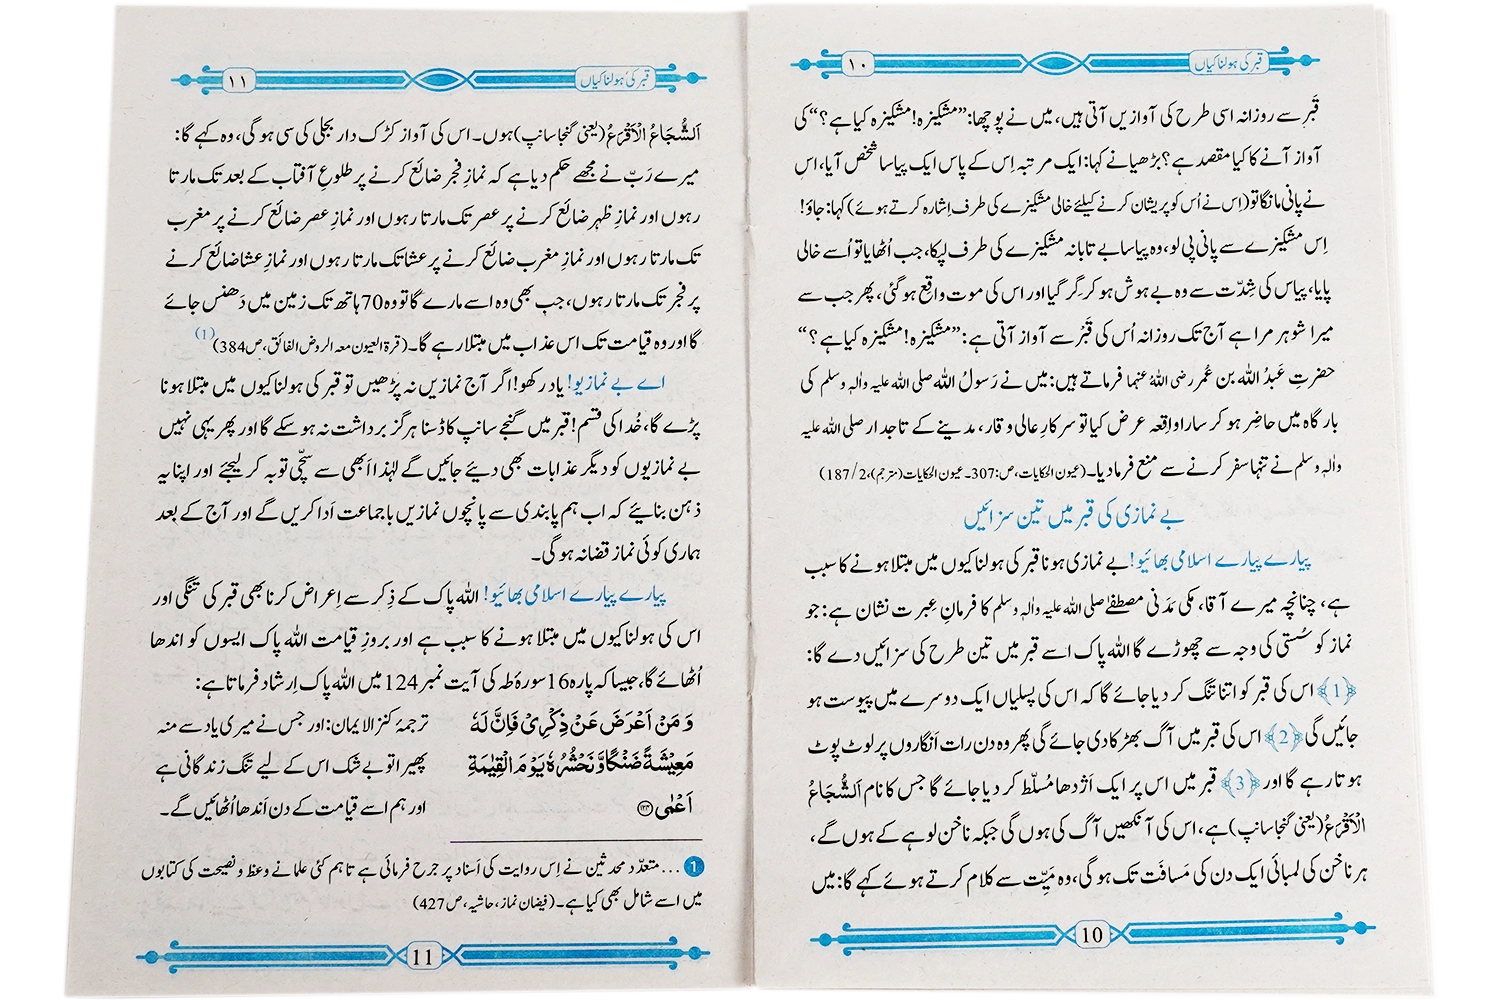 قبر کی ہولناکیاں
۱۰
قَبْر سے روزانہ اسی طرح کی آوازیں آتی ہیں، میں نے پوچھا: ”مشکیزہ! مشکیزہ کیا ہے؟“ کی
آواز آنے کا کیا مقصد ہے؟ بڑھیا نے کہا: ایک مرتبہ اِس کے پاس ایک پیاسا شخص آیا، اس
نے پانی مانگا تو (اِس نے اُس کو پریشان کرنے کیلئے خالی مشکیزے کی طرف اِشارہ کرتے ہوئے) کہا: جاؤ!
اِس مشکیزے سے پانی پی لو، وہ پیاسا بے تابانہ مشکیزے کی طرف لپکا، جب اُٹھایا تو اُسے خالی
پایا، پیاس کی شِدّت سے وہ بے ہوش ہو کر گِر گیا اور اس کی موت واقع ہو گئی، پھر جب سے
میرا شوہر مرا ہے آج تک روزانہ اُس کی قَبْر سے آواز آتی ہے: ”مشکیزہ! مشکیزہ کیا ہے؟“
حضرتِ عبدُ اللہ بن عُمر رضی اللہُ عنہما فرماتے ہیں: میں نے رَسولُ اللہ صلی اللہ علیہ واٰلہٖ وسلم کی
بارگاہ میں حاضِر ہو کر سارا واقِعہ عرض کیا تو سرکارِ عالی وقار، مدینے کے تاجدار صلی اللہ علیہ
واٰلہٖ وسلم نے تنہا سفر کرنے سے منع فرما دیا۔ (عیون الحکایات، ص: 307۔ عیون الحکایات (مترجم)، 2/187)
بے نمازی کی قبر میں تین سزائیں
پیارے پیارے اسلامی بھائیو! بے نمازی ہونا قبر کی ہولناکیوں میں مبتلا ہونے کا سبب
ہے، چنانچہ میرے آقا، مکی مَدَنی مصطفےٰ صلی اللہ علیہ واٰلہٖ وسلم کا فرمانِ عِبرت نشان ہے: جو
نماز کو سُستی کی وجہ سے چھوڑے گا اللہ پاک اسے قبر میں تین طرح کی سزائیں دے گا:
﴿1﴾ اس کی قبر کو اتنا تنگ کر دیا جائے گا کہ اس کی پسلیاں ایک دوسرے میں پیوست ہو
جائیں گی ﴿2﴾ اس کی قبر میں آگ بھڑکا دی جائے گی پھر وہ دن رات اَنگاروں پر لوٹ پوٹ
ہوتا رہے گا اور ﴿3﴾ قبر میں اس پر ایک اَژدھا مُسلّط کر دیا جائے گا جس کا نام اَلشُّجَاعُ
الْاَقْرَعُ (یعنی گنجا سانپ) ہے، اس کی آنکھیں آگ کی ہوں گی جبکہ ناخن لوہے کے ہوں گے،
ہر ناخن کی لمبائی ایک دن کی مَسافَت تک ہو گی، وہ میِّت سے کلام کرتے ہوئے کہے گا: میں
10
قبر کی ہولناکیاں
۱۱
اَلشُّجَاعُ الْاَقْرَعُ (یعنی گنجا سانپ) ہوں۔ اس کی آواز کڑک دار بجلی کی سی ہو گی، وہ کہے گا:
میرے رَبّ نے مجھے حکم دیا ہے کہ نمازِ فجر ضائع کرنے پر طلوعِ آفتاب کے بعد تک مارتا
رہوں اور نمازِ ظہر ضائع کرنے پر عصر تک مارتا رہوں اور نمازِ عصر ضائع کرنے پر مغرب
تک مارتا رہوں اور نمازِ مغرب ضائع کرنے پر عشا تک مارتا رہوں اور نمازِ عشا ضائع کرنے
پر فجر تک مارتا رہوں، جب بھی وہ اسے مارے گا تو وہ 70 ہاتھ تک زمین میں دَھنس جائے
گا اور وہ قیامت تک اس عذاب میں مبتلا رہے گا۔ (قرۃ العیون معہ الروض الفائق، ص384) (1)
اے بے نمازیو! یاد رکھو! اگر آج نمازیں نہ پڑھیں تو قبر کی ہولناکیوں میں مبتلا ہونا
پڑے گا، خُدا کی قسم! قبر میں گنجے سانپ کا ڈسنا ہرگز برداشت نہ ہو سکے گا اور پھر یہی نہیں
بے نمازیوں کو دیگر عذابات بھی دیئے جائیں گے لہٰذا اَبھی سے سچّی توبہ کر لیجئے اور اپنا یہ
ذہن بنائیے کہ اب ہم پابندی سے پانچوں نمازیں با جماعت اَدا کریں گے اور آج کے بعد
ہماری کوئی نماز قضا نہ ہو گی۔
پیارے پیارے اسلامی بھائیو! اللہ پاک کے ذِکر سے اِعراض کرنا بھی قبر کی تنگی اور
اس کی ہولناکیوں میں مبتلا ہونے کا سبب ہے اور بروزِ قیامت اللہ پاک ایسوں کو اندھا
اُٹھائے گا، جیسا کہ پارہ 16 سورۂ طٰہٰ کی آیت نمبر 124 میں اللہ پاک اِرشاد فرماتا ہے:
وَ مَنْ اَعْرَضَ عَنْ ذِكْرِیْ فَاِنَّ لَهٗ
مَعِیْشَةً ضَنْكًا وَّ نَحْشُرُهٗ یَوْمَ الْقِیٰمَةِ
اَعْمٰى ﴿۱۲۴﴾
ترجمۂ کنز الایمان: اور جس نے میری یاد سے منہ
پھیرا تو بے شک اس کے لیے تنگ زندگانی ہے
اور ہم اسے قیامت کے دن اَندھا اُٹھائیں گے۔
1 ... متعدّد محدثین نے اِس روایت کی اَسناد پر جرح فرمائی ہے تاہم کئی علما نے وعظ و نصیحت کی کتابوں
میں اسے شامل بھی کیا ہے۔ (فیضان نماز، حاشیہ، ص427)
11